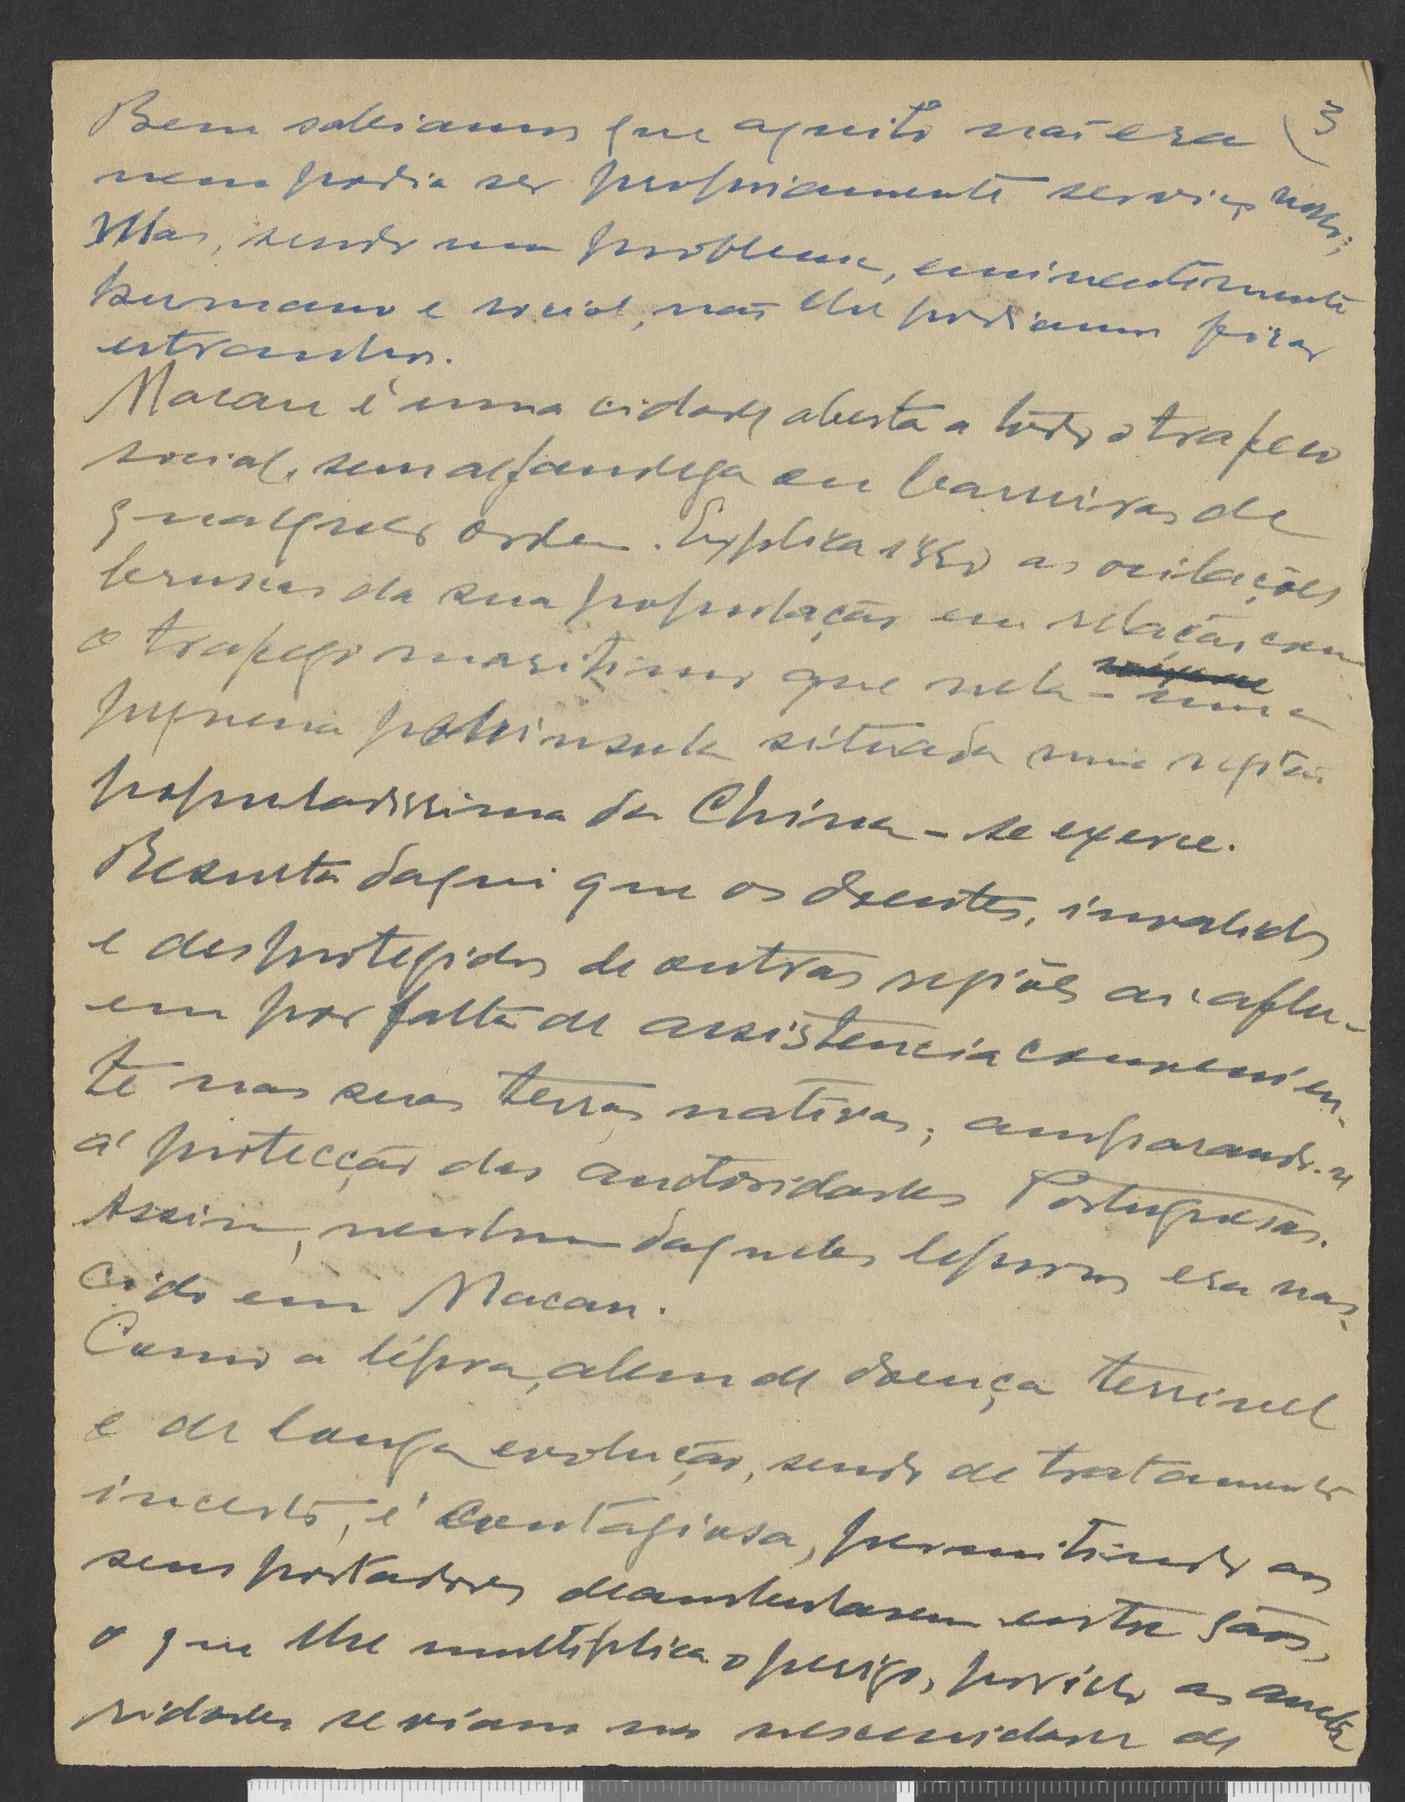 3
Bem sabiamos que aquilo não era
nem podia ser propriamente serviço nosso;
Mas, sendo um problema, eminentemente
humano e social, não lhe podiamos ficar
estranhos.
Macau é uma cidade aberta a todo o trafego
social, sem alfandega ou barreiras de
qualquer ordem. Explica isso as oscilações
bruscas da sua população em relação com
o trafego maritimo que nela - uma
pequena peninsula situada numa região
populadissima da China - se exerce.
Resulta daqui que os doentes, invalidos
e desprotegidos de outras regiões ai aflu-
em por falta de assistencia convenien-
te nas suas terras nativas; amparando-se
á protecção das autoridades Portuguesas.
Assim, nenhum daqueles leprosos era nas-
cido em Macau.
Como a lépra, alem de doença terrivel
e de longa evolução, sendo de tratamento
incerto, é contagiosa, permitindo aos
seus portadores deambularem entre sãos,
o que lhe multiplica o perigo, por isso as auto-
ridades se viam na necessidade de